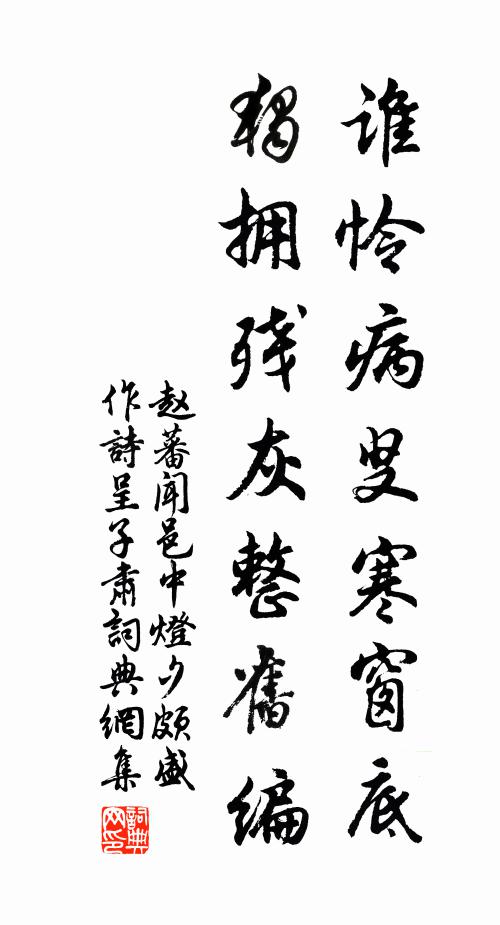 谁怜病叟寒窗底
独拥残灰整旧编
赵蕃闻邑中燈夕颇盛
作詩呈子肃詞典網集
詞典
网印